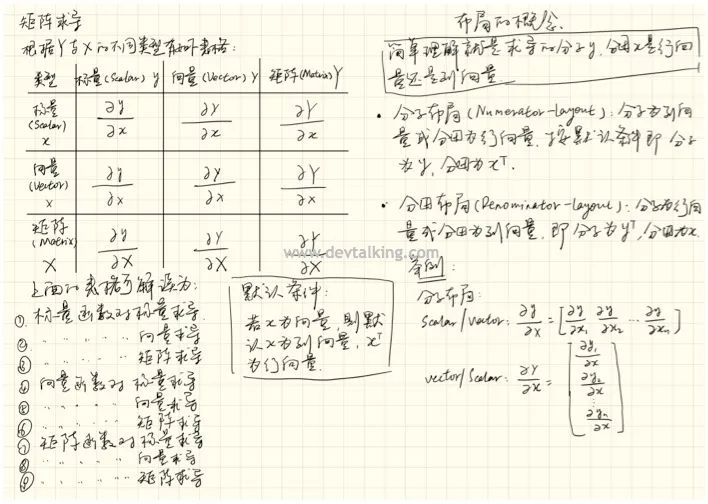 矩阵求导
根据Y与X的不同类型有如下表格:
类型 标量(Scalar) y 向量(Vector) Y 矩阵(Matrix) Y
标量 (Scalar) x ∂y/∂x ∂Y/∂x ∂Y/∂x
向量 (Vector) x ∂y/∂x ∂y/∂x ∂Y/∂x
矩阵 (Matrix) X ∂y/∂X ∂Y/∂X ∂Y/∂X
上面的表格可解读为:
① 标量函数对标量求导
② 〃 〃 〃 〃 向量求导
③ 〃 〃 〃 〃 矩阵求导
④ 向量函数对标量求导
⑤ 〃 〃 〃 〃 向量求导
⑥ 〃 〃 〃 〃 矩阵求导
⑦ 矩阵函数对标量求导
⑧ 〃 〃 〃 〃 向量求导
⑨ 〃 〃 〃 〃 矩阵求导
默认条件:
若x为向量, 则默
认x为列向量, xᵀ
为行向量.
布局的概念.
简单理解就是求导的分子y, 分母x是行向
量还是列向量
• 分子布局(Numerator-layout): 分子为列向
量或分母为行向量. 按默认条件即 分子
为y, 分母为xᵀ.
• 分母布局(Denominator-layout): 分子为行向
量或分母为列向量. 即分子为yᵀ, 分母为x.
举例:
分子布局:
Scalar/Vector: ∂y/∂x = [∂y/∂x₁ ∂y/∂x₂ ... ∂y/∂xₙ]
vector/Scalar: ∂Y/∂x = [∂y₁/∂x ∂y₂/∂x ⋮ ∂yₙ/∂x]
www.devtalking.com